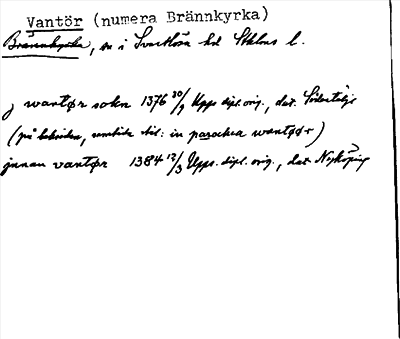 Vantör (numera Brännkyrka)
Brännkyrka, sn i Svartlösa hd Sthlms l.
j wantør sokn 1376 30/9 Upps dipl. orig., dat. Södertälje
(på baksidan, samtida hd: in parochia wantøør)
innan vantør 1384 12/3 Upps. dipl. orig., dat. Nyköping